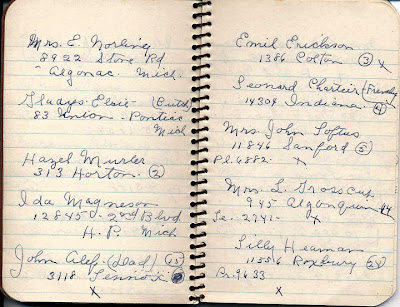 Mrs. E. Norling
8922 Stone Rd
Algonac. Mich.
Gladys. Elsie - (Butch)
83 - Pontiac
Mich
Hazel Murter
313 Horton. (2)
Ida Magneson
12845 - 2nd Blvd
H. P. Mich
John Alef. (dead) (15)
3118 Lennox
x
Emil Erickson
1386 Colton (3) x
Leonard (Frenchy)
14304 Indiana. (4)
Mrs John Loftus
11846 Sanford (5)
Pl. 6882. x
Mrs. L. Grosscup
945 Algonquin
Le. 2741 - x
Lilly Heaman
11556 Roxbury (24)
Pr. 9633
x